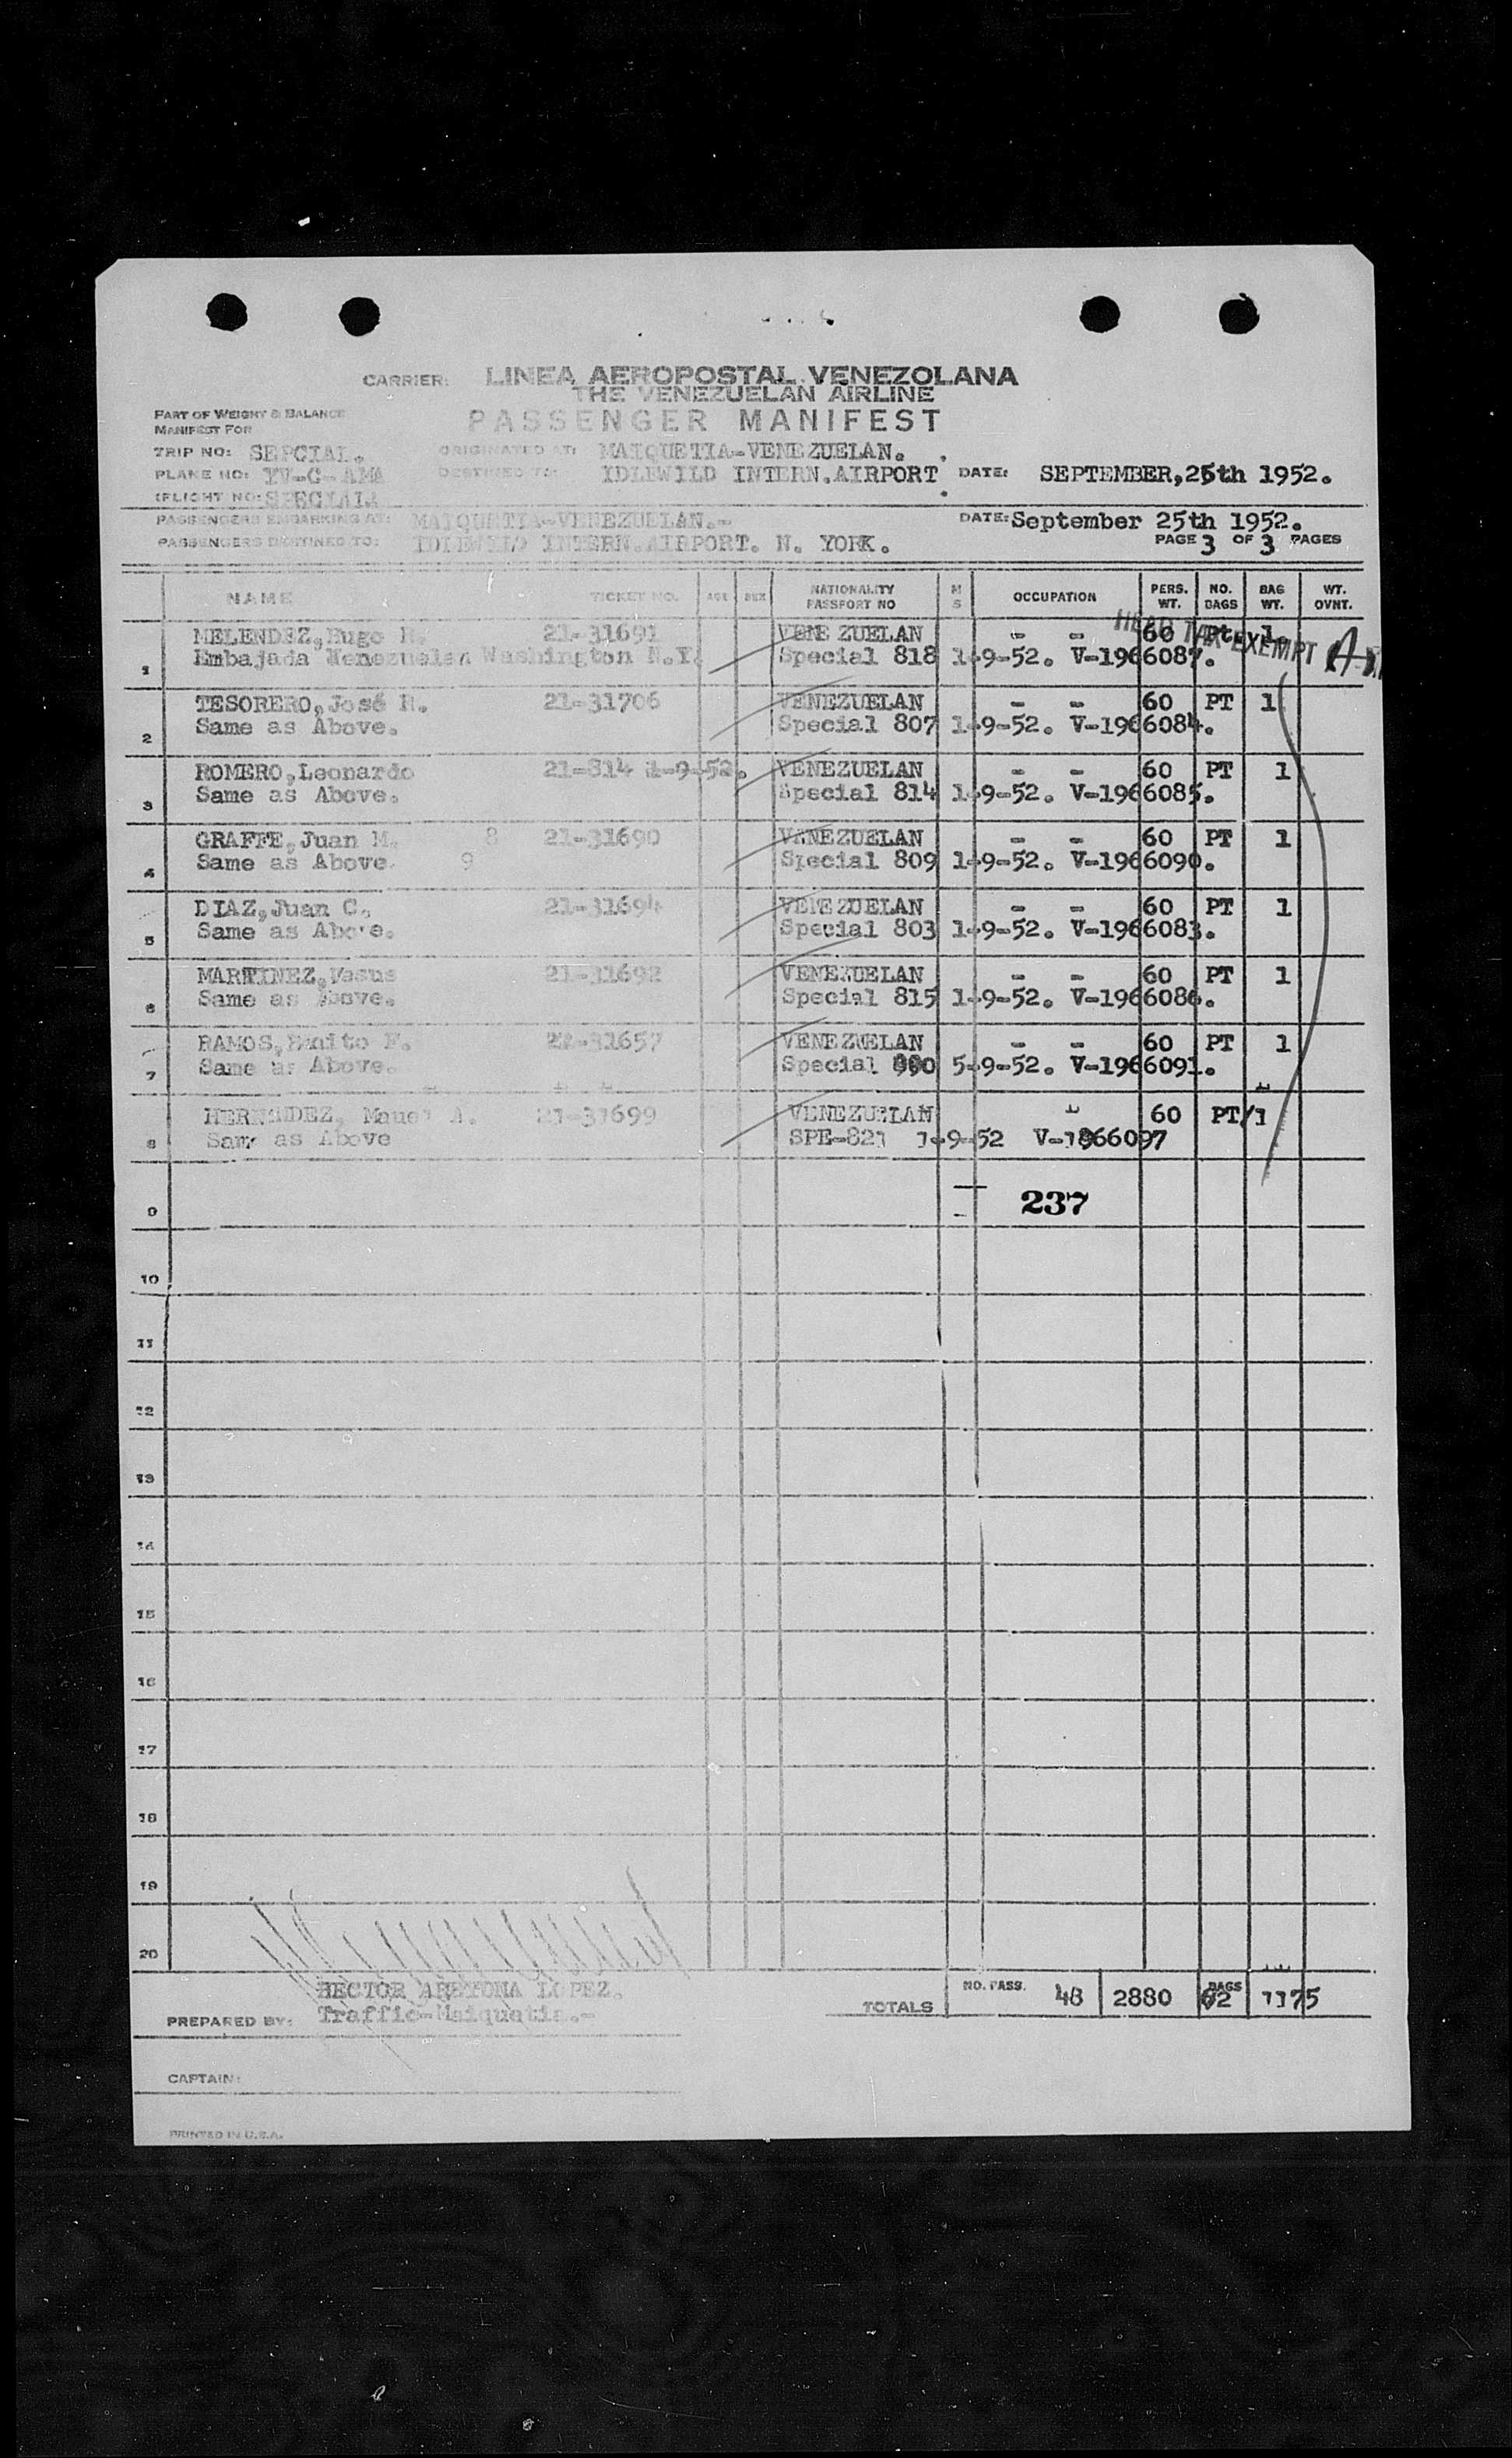 CARRIER: LINEA AEROPOSTAL VENEZOLANA
THE VENEZUELAN AIRLINE
PART OF WEIGHT & BALANCE
MANIFEST FOR
PASSENGER MANIFEST
TRIP NO: SEPCIAL. ORIGINATED AT: MAIQUETIA-VENEZUELAN.
PLANE NO: YV-C-AMA DESTINED TO: IDLEWILD INTERN.AIRPORT DATE: SEPTEMBER,25th 1952.
(FLIGHT NO:
PASSENGERS EMBARKING AT: MAIQUETIA-VENEZUELAN.- DATE: September 25th 1952.
PASSENGERS DESTINED TO: IDLEWILD INTERN.AIRPORT. N. YORK. PAGE 3 OF 3 PAGES
NAME TICKET NO. AGE SEX NATIONALITY PASSPORT NO M S OCCUPATION PERS. WT. NO. BAGS BAG WT. WT. OVNT.
HEAD TAX EXEMPT
MELENDEZ,Hugo R. 21-31691 VENE ZUELAN - - 60 Pt. 1
1 Embajada Venezuelan Washington N.Y. Special 818 1-9-52. V-1966087.
TESORERO,José R. 21-31706 VENEZUELAN - - 60 PT 1
2 Same as Above. Special 807 1-9-52. V-1966084.
ROMERO,Leonardo 21-814 1-9-52. VENEZUELAN - - 60 PT 1
3 Same as Above. Special 814 1-9-52. V-1966085.
GRAFFE,Juan M. 8 21-31690 VENEZUELAN - - 60 PT 1
4 Same as Above. 9 Special 809 1-9-52. V-1966090.
DIAZ,Juan C. 21-31694 VENEZUELAN - - 60 PT 1
5 Same as Above. Special 803 1-9-52. V-1966083.
MARTINEZ, 21-31692 VENEZUELAN - - 60 PT 1
6 Same as Above. Special 815 1-9-52. V-1966086.
RAMOS,Benito F. 21-31657 VENEZUELAN - - 60 PT 1
7 Same as Above. Special 5-9-52. V-1966091.
HERNANDEZ, Manuel A. 21-31699 VENEZUELAN 60 PT/1
8 Same as Above SPE-821 1-9-52 V-1966097
9 237
10
11
12
13
14
15
16
17
18
19
20
HECTOR ARETONA LOPEZ.
PREPARED BY: Traffic-Maiquetia.- TOTALS NO. PASS. 48 2880 BAGS 62 1175
CAPTAIN:
PRINTED IN U.S.A.